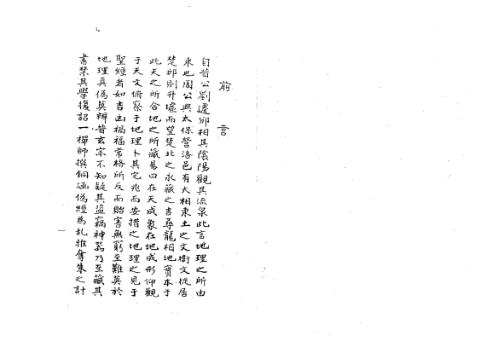 前言
自昔公劉遷邠相其陰陽觀其流泉此言地理之所由
來也周公與太保營洛邑有大相東土之文衛文從居
楚邱則升墟而望楚北之水藏之吉尋龍相地實本于
此天之所合地之所藏易曰在天成象在地成形仰觀
于天文俯察于地理卜其宅兆而安措之地理之見于
聖經者如吉凶禍福常格所反而貽害無窮至難莫於
地理真偽莫辨昔玄宗不知疑其盜竊神器乃至藏其
書禁其學復詔一禪師撰銅函偽經為亂推奪朱之計
一